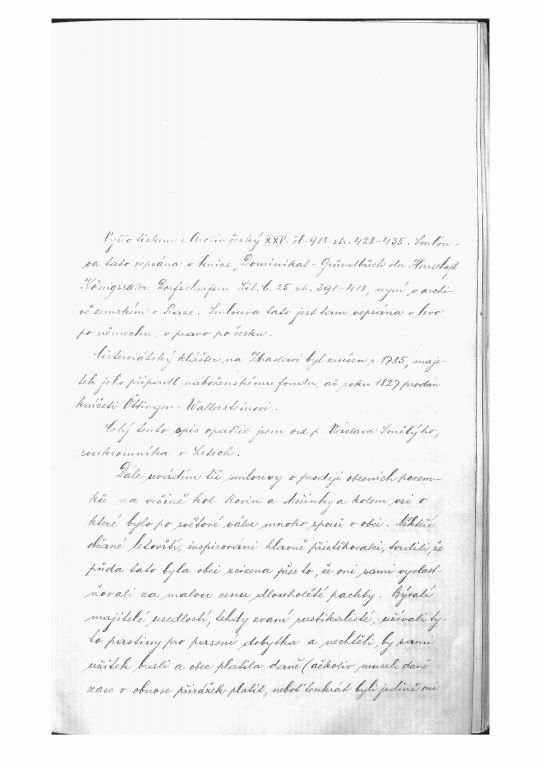 Vyšlo tiskem: Archiv český XXV. čl. 918 str. 428-435. Smlou-
va tato vepsána v knize, Dominikal-Grundbuch der Herrschaft
Königssaler Dorfschaften Lit. C. 25 st. 391-418, nyní v archi-
vě zemském v Praze. Smlouva tato jest tam vepsána v levo
po německu, v pravo po česku.
Cisterciátský klášter na Zbraslavi byl zrušen r. 1785, maje-
tek jeho připadl náboženskému fondu až roku 1827 prodán
knížeti Öttingen-Wallersteinovi.
Celý tento opis opatřil jsem od p. Václava Smělýho,
soukromníka v Letech.
Dále uvádím tři smlouvy o prodeji obecních pozem-
ků na vršině kol Rovin a Mořinky a kolem vsi o
které bylo po světové válce mnoho sporů v obci. Někteří
občané letovští, inspirováni hlavně přistěhovalci, tvrdili, že
půda tato byla obci zcizena přes to, že oni sami vyvlast-
ňovali za malou cenu dlouholeté pachty. Bývalí
majitelé usedlostí, tehdy zvaní rustikalisté, užívali ty-
to pastiny pro pasení dobytka a nechtěli, by sami
užitek brali a obec platila daně (ačkoliv museli daně
zase v obnose přirážek platit, neboť tenkrát byli jedině oni